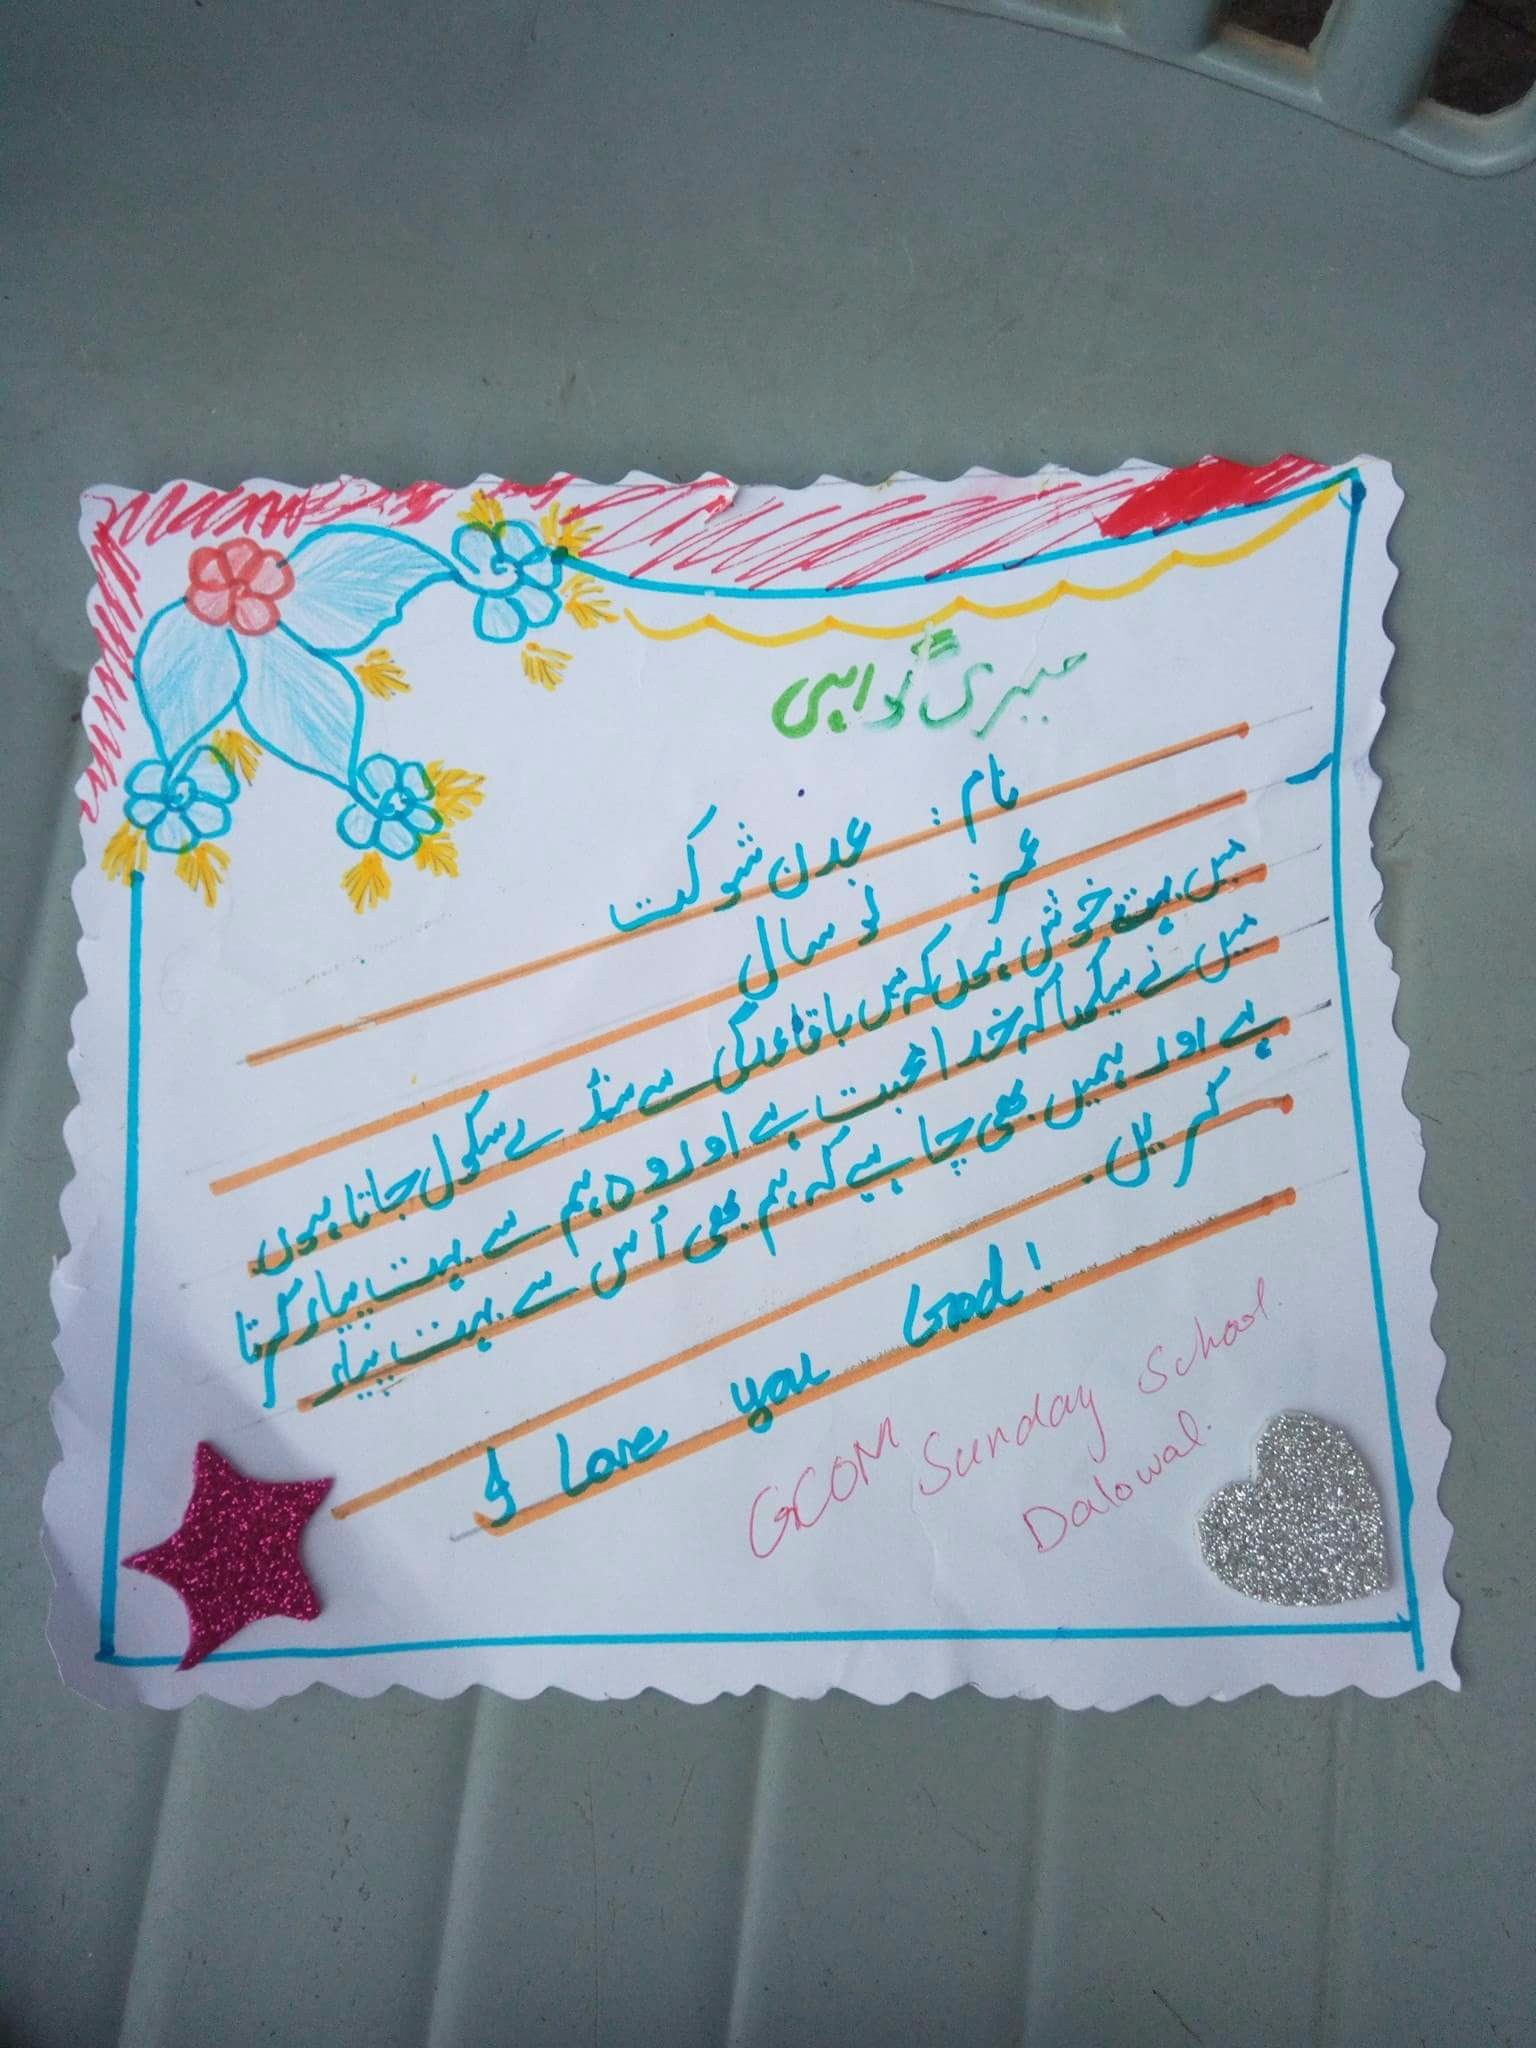 میری گواہی
نام: عدن شوکت
عمر: نو سال
میں بہت خوش ہوں کہ میں باقاعدگی سے سنڈے سکول جاتا ہوں.
میں نے سیکھا کہ خدا محبت ہے اور وہ ہم سے بہت پیار کرتا
ہے اور ہمیں بھی چاہیے کہ ہم بھی اُس سے بہت پیار
کریں.
I Love you God!
GCOM Sunday School.
Dalowal.